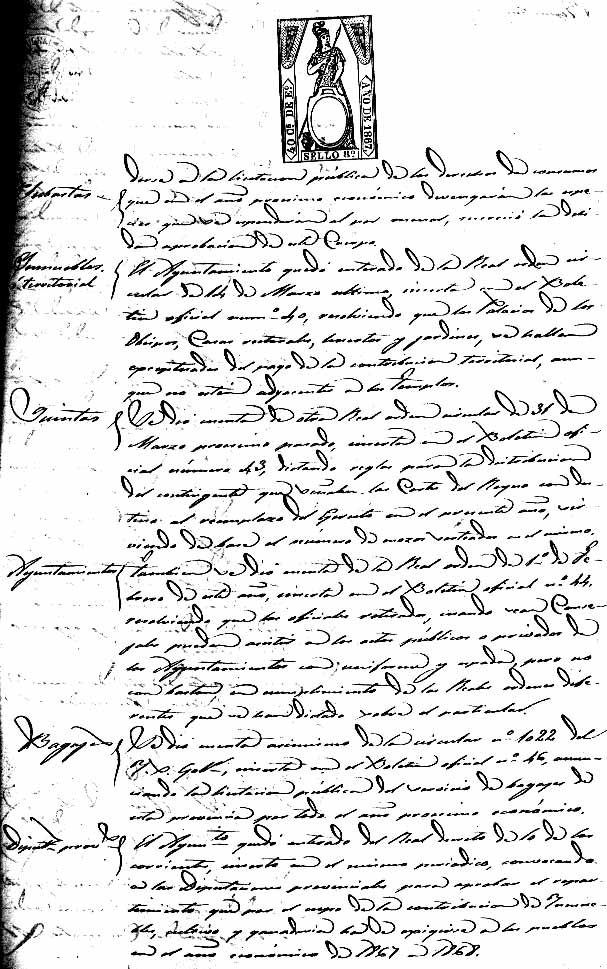 40 Cs. DE Eo.
AÑO DE 1867
SELLO 8o.
Subastas
derse a la licitacion pública de los derechos de consumos
que en el año proximo económico devengarán las espe-
cies que se expenderán al por menor, mereció la debi-
da aprobacion de este Cuerpo.
Inmuebles.
territorial
El Ayuntamiento quedó enterado de la Real orden cir-
cular de 14 de Marzo ultimo, inserta en el Bole-
tin oficial numo. 40, resolviendo que los Palacios de los
Obispos, Casas rectorales, huertos y jardines, se hallan
exceptuados del pago de la contribucion territorial, aun-
que no estén adyacentes a los templos.
Quintas
Se dió cuenta de otra Real orden circular de 31 de
Marzo proximo pasado, inserta en el Boletin ofi-
cial número 43, dictando reglas para la distribucion
del contingente que señalen las Cortes del Reyno con des-
tino al reemplazo del Egercito en el presente año, sir-
viendo de base el número de mozos sorteados en el mismo.
Ayuntamientos
Tambien se dió cuenta de la Real orden de 1o. de Fe-
brero de este año, inserta en el Boletin oficial no. 44,
resolviendo que los oficiales retirados, cuando sean Conce-
jales puedan asistir a los actos públicos o privados de
los Ayuntamientos con uniforme y espada, pero no
con baston, en cumplimiento de las Reales ordenes dife-
rentes que se han dictado sobre el particular.
Bagajes
Se dió cuenta asimismo de la circular no. 1022 del
Gobo., inserta en el Boletin oficial no. 46, anun-
ciando la licitacion pública del servicio de bagajes de
esta provincia por todo el año proximo económico.
Diputn. provl.
El Ayunto. quedó enterado del Real decreto de 10 de los
corrientes, inserto en el mismo periodico, convocando
a las Diputaciones provinciales para aprobar el repar-
timiento que por el cupo de la contribucion de Inmue-
bles, cultivo y ganaderia ha de exigirse a los pueblos
en el año económico de 1867 a 1868.